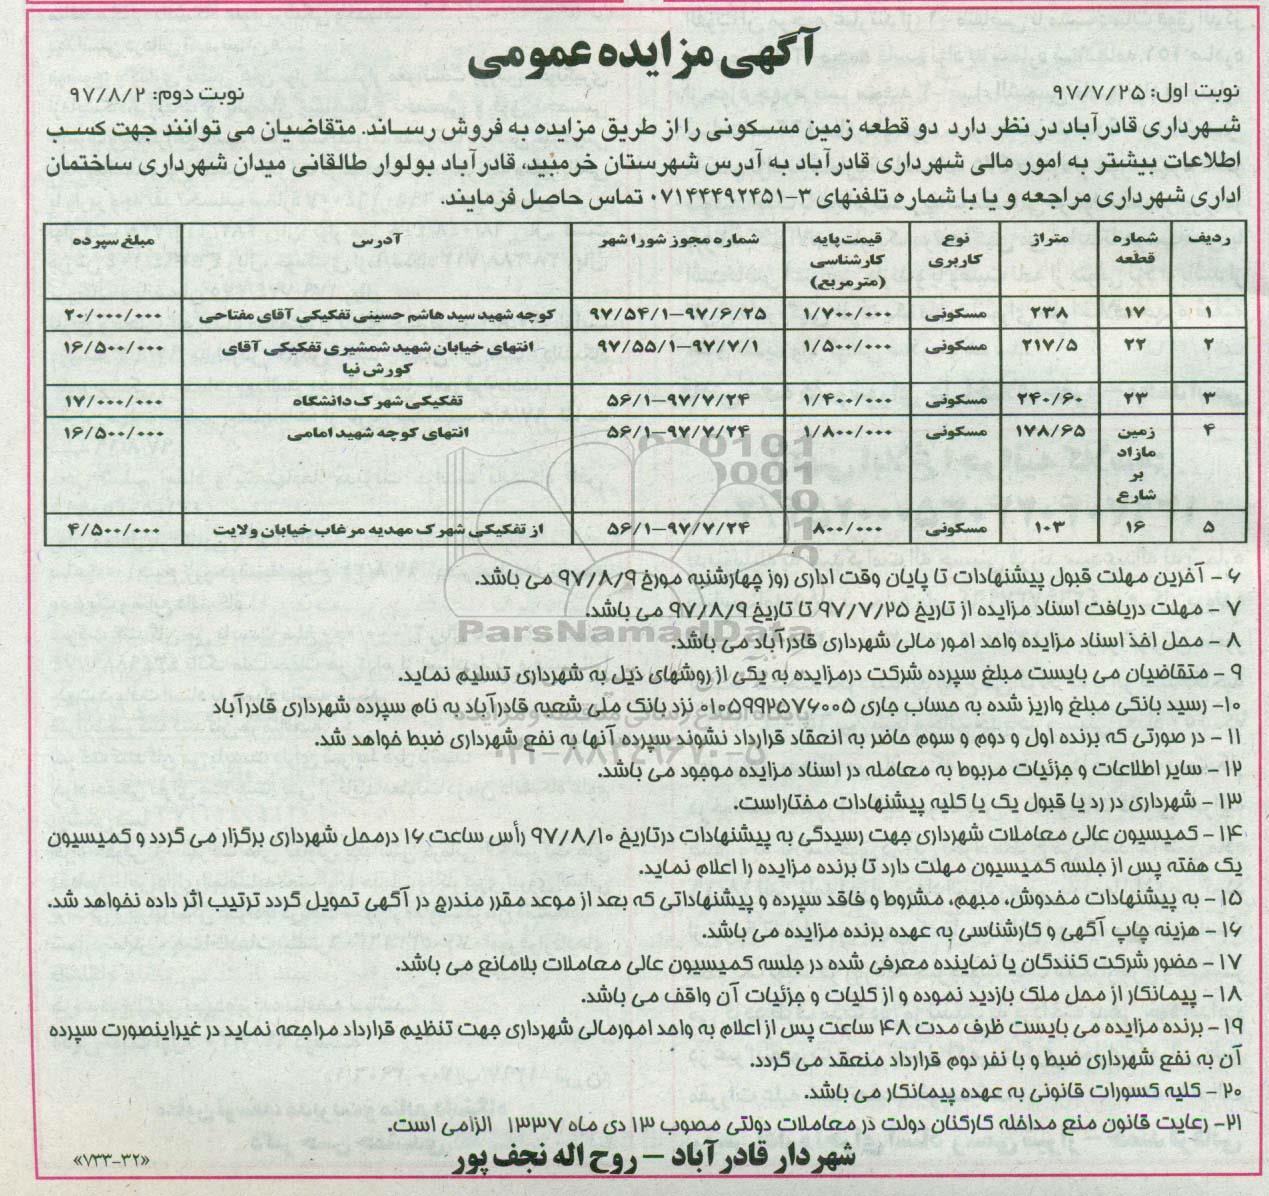 آگهی مزایده عمومی
نوبت اول: ۹۷/۷/۲۵
نوبت دوم: ۹۷/۸/۲
شهرداری قادرآباد در نظر دارد دو قطعه زمین مسکونی را از طریق مزایده به فروش رساند. متقاضیان می توانند جهت کسب
اطلاعات بیشتر به امور مالی شهرداری قادرآباد به آدرس شهرستان خرمبید، قادرآباد بولوار طالقانی میدان شهرداری ساختمان
اداری شهرداری مراجعه و یا با شماره تلفنهای ۳-۰۷۱۴۴۴۹۲۴۵۱ تماس حاصل فرمایند.
ردیف شماره قطعه متراژ نوع کاربری قیمت پایه کارشناسی (مترمربع) شماره مجوز شورا شهر آدرس مبلغ سپرده
۱ ۱۷ ۲۳۸ مسکونی ۱/۷۰۰/۰۰۰ ۹۷/۵۴/۱-۹۷/۶/۲۵ کوچه شهید سید هاشم حسینی تفکیکی آقای مفتاحی ۲۰/۰۰۰/۰۰۰
۲ ۲۲ ۲۱۷/۵ مسکونی ۱/۵۰۰/۰۰۰ ۹۷/۵۵/۱-۹۷/۷/۱ انتهای خیابان شهید شمشیری تفکیکی آقای کورش نیا ۱۶/۵۰۰/۰۰۰
۳ ۲۳ ۲۴۰/۶۰ مسکونی ۱/۴۰۰/۰۰۰ ۵۶/۱-۹۷/۷/۲۴ تفکیکی شهرک دانشگاه ۱۷/۰۰۰/۰۰۰
۴ زمین مازاد بر شارع ۱۷۸/۶۵ مسکونی ۱/۸۰۰/۰۰۰ ۵۶/۱-۹۷/۷/۲۴ انتهای کوچه شهید امامی ۱۶/۵۰۰/۰۰۰
۵ ۱۶ ۱۰۳ مسکونی ۸۰۰/۰۰۰ ۵۶/۱-۹۷/۷/۲۴ از تفکیکی شهرک مهدیه مرغاب خیابان ولایت ۴/۵۰۰/۰۰۰
۶ - آخرین مهلت قبول پیشنهادات تا پایان وقت اداری روز چهارشنبه مورخ ۹۷/۸/۹ می باشد.
۷ - مهلت دریافت اسناد مزایده از تاریخ ۹۷/۷/۲۵ تا تاریخ ۹۷/۸/۹ می باشد.
۸ - محل اخذ اسناد مزایده واحد امور مالی شهرداری قادرآباد می باشد.
۹ - متقاضیان می بایست مبلغ سپرده شرکت درمزایده به یکی از روشهای ذیل به شهرداری تسلیم نماید.
۱۰- رسید بانکی مبلغ واریز شده به حساب جاری ۰۱۰۵۹۹۲۵۷۶۰۰۵ نزد بانک ملی شعبه قادرآباد به نام سپرده شهرداری قادرآباد
۱۱ - در صورتی که برنده اول و دوم و سوم حاضر به انعقاد قرارداد نشوند سپرده آنها به نفع شهرداری ضبط خواهد شد.
۱۲- سایر اطلاعات و جزئیات مربوط به معامله در اسناد مزایده موجود می باشد.
۱۳ - شهرداری در رد یا قبول یک یا کلیه پیشنهادات مختاراست.
۱۴ - کمیسیون عالی معاملات شهرداری جهت رسیدگی به پیشنهادات درتاریخ ۹۷/۸/۱۰ رأس ساعت ۱۶ درمحل شهرداری برگزار می گردد و کمیسیون
یک هفته پس از جلسه کمیسیون مهلت دارد تا برنده مزایده را اعلام نماید.
۱۵- به پیشنهادات مخدوش، مبهم، مشروط و فاقد سپرده و پیشنهاداتی که بعد از موعد مقرر مندرج در آگهی تحویل گردد ترتیب اثر داده نخواهد شد.
۱۶ - هزینه چاپ آگهی و کارشناسی به عهده برنده مزایده می باشد.
۱۷ - حضور شرکت کنندگان یا نماینده معرفی شده در جلسه کمیسیون عالی معاملات بلامانع می باشد.
۱۸ - پیمانکار از محل ملک بازدید نموده و از کلیات و جزئیات آن واقف می باشد.
۱۹- برنده مزایده می بایست ظرف مدت ۴۸ ساعت پس از اعلام به واحد امورمالی شهرداری جهت تنظیم قرارداد مراجعه نماید در غیراینصورت سپرده
آن به نفع شهرداری ضبط و با نفر دوم قرارداد منعقد می گردد.
۲۰- کلیه کسورات قانونی به عهده پیمانکار می باشد.
۲۱- رعایت قانون منع مداخله کارکنان دولت در معاملات دولتی مصوب ۱۳ دی ماه ۱۳۳۷ الزامی است.
شهردار قادرآباد - روح اله نجف پور
«۷۳۳-۳۲»
ParsNamadData
پایگاه اطلاع رسانی مناقصه و مزایده
۰۲۱-۸۸۳۴۹۶۷۰-۵